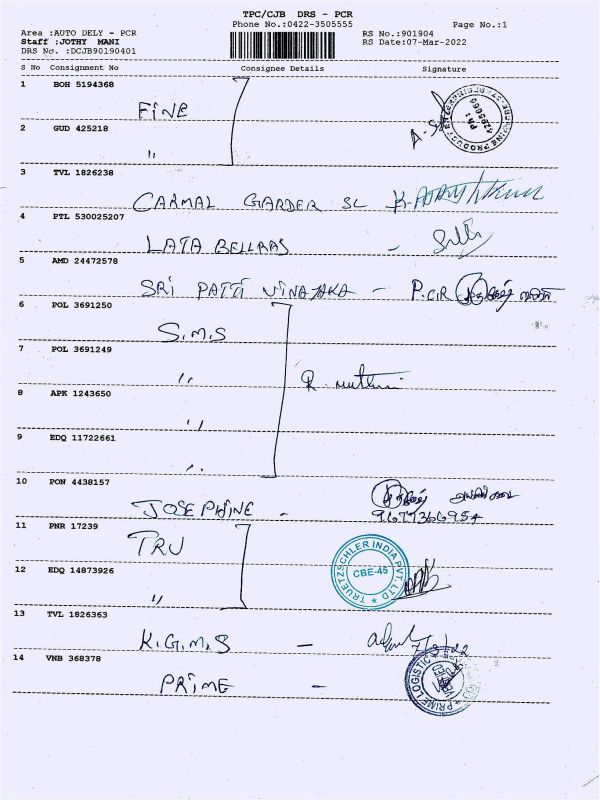 TPC/CJB DRS - PCR
Phone No.:0422-3505555
Page No.:1
Area :AUTO DELY - PCR
Staff :JOTHY MANI
DRS No. :DCJB90190401
RS No.:901904
RS Date:07-Mar-2022
S No Consignment No Consignee Details Signature
1 BOH 5194368
FiNE
2 GUD 425218
"
A.S
Ph:
4295669
3 TVL 1826238
CARMAL GARDER SC
4 PTL 530025207
LATA BELLRAS -
5 AMD 24472578
SRi PATTi ViNAYAKA - P.C.R
6 POL 3691250
S.M.S
7 POL 3691249
"
8 APK 1243650
"
9 EDQ 11722661
"
10 PON 4438157
JOSEPHiNE -
9677366954
11 PNR 17239
TRU
12 EDQ 14873926
"
TRUETZSCHLER INDIA PVT. LTD
CBE-45
13 TVL 1826363
K.G.M.S -
7/3/22
14 VNB 368378
PRiME -
PRIME LOGISTIC